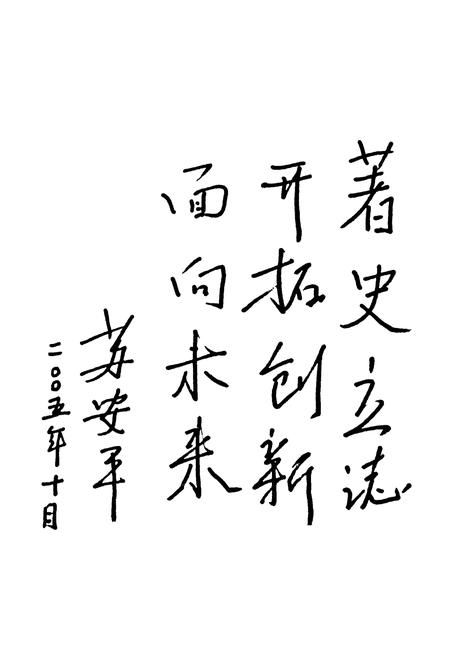 著史立誌
开拓创新
面向未来
苏安平
二〇〇五年十月